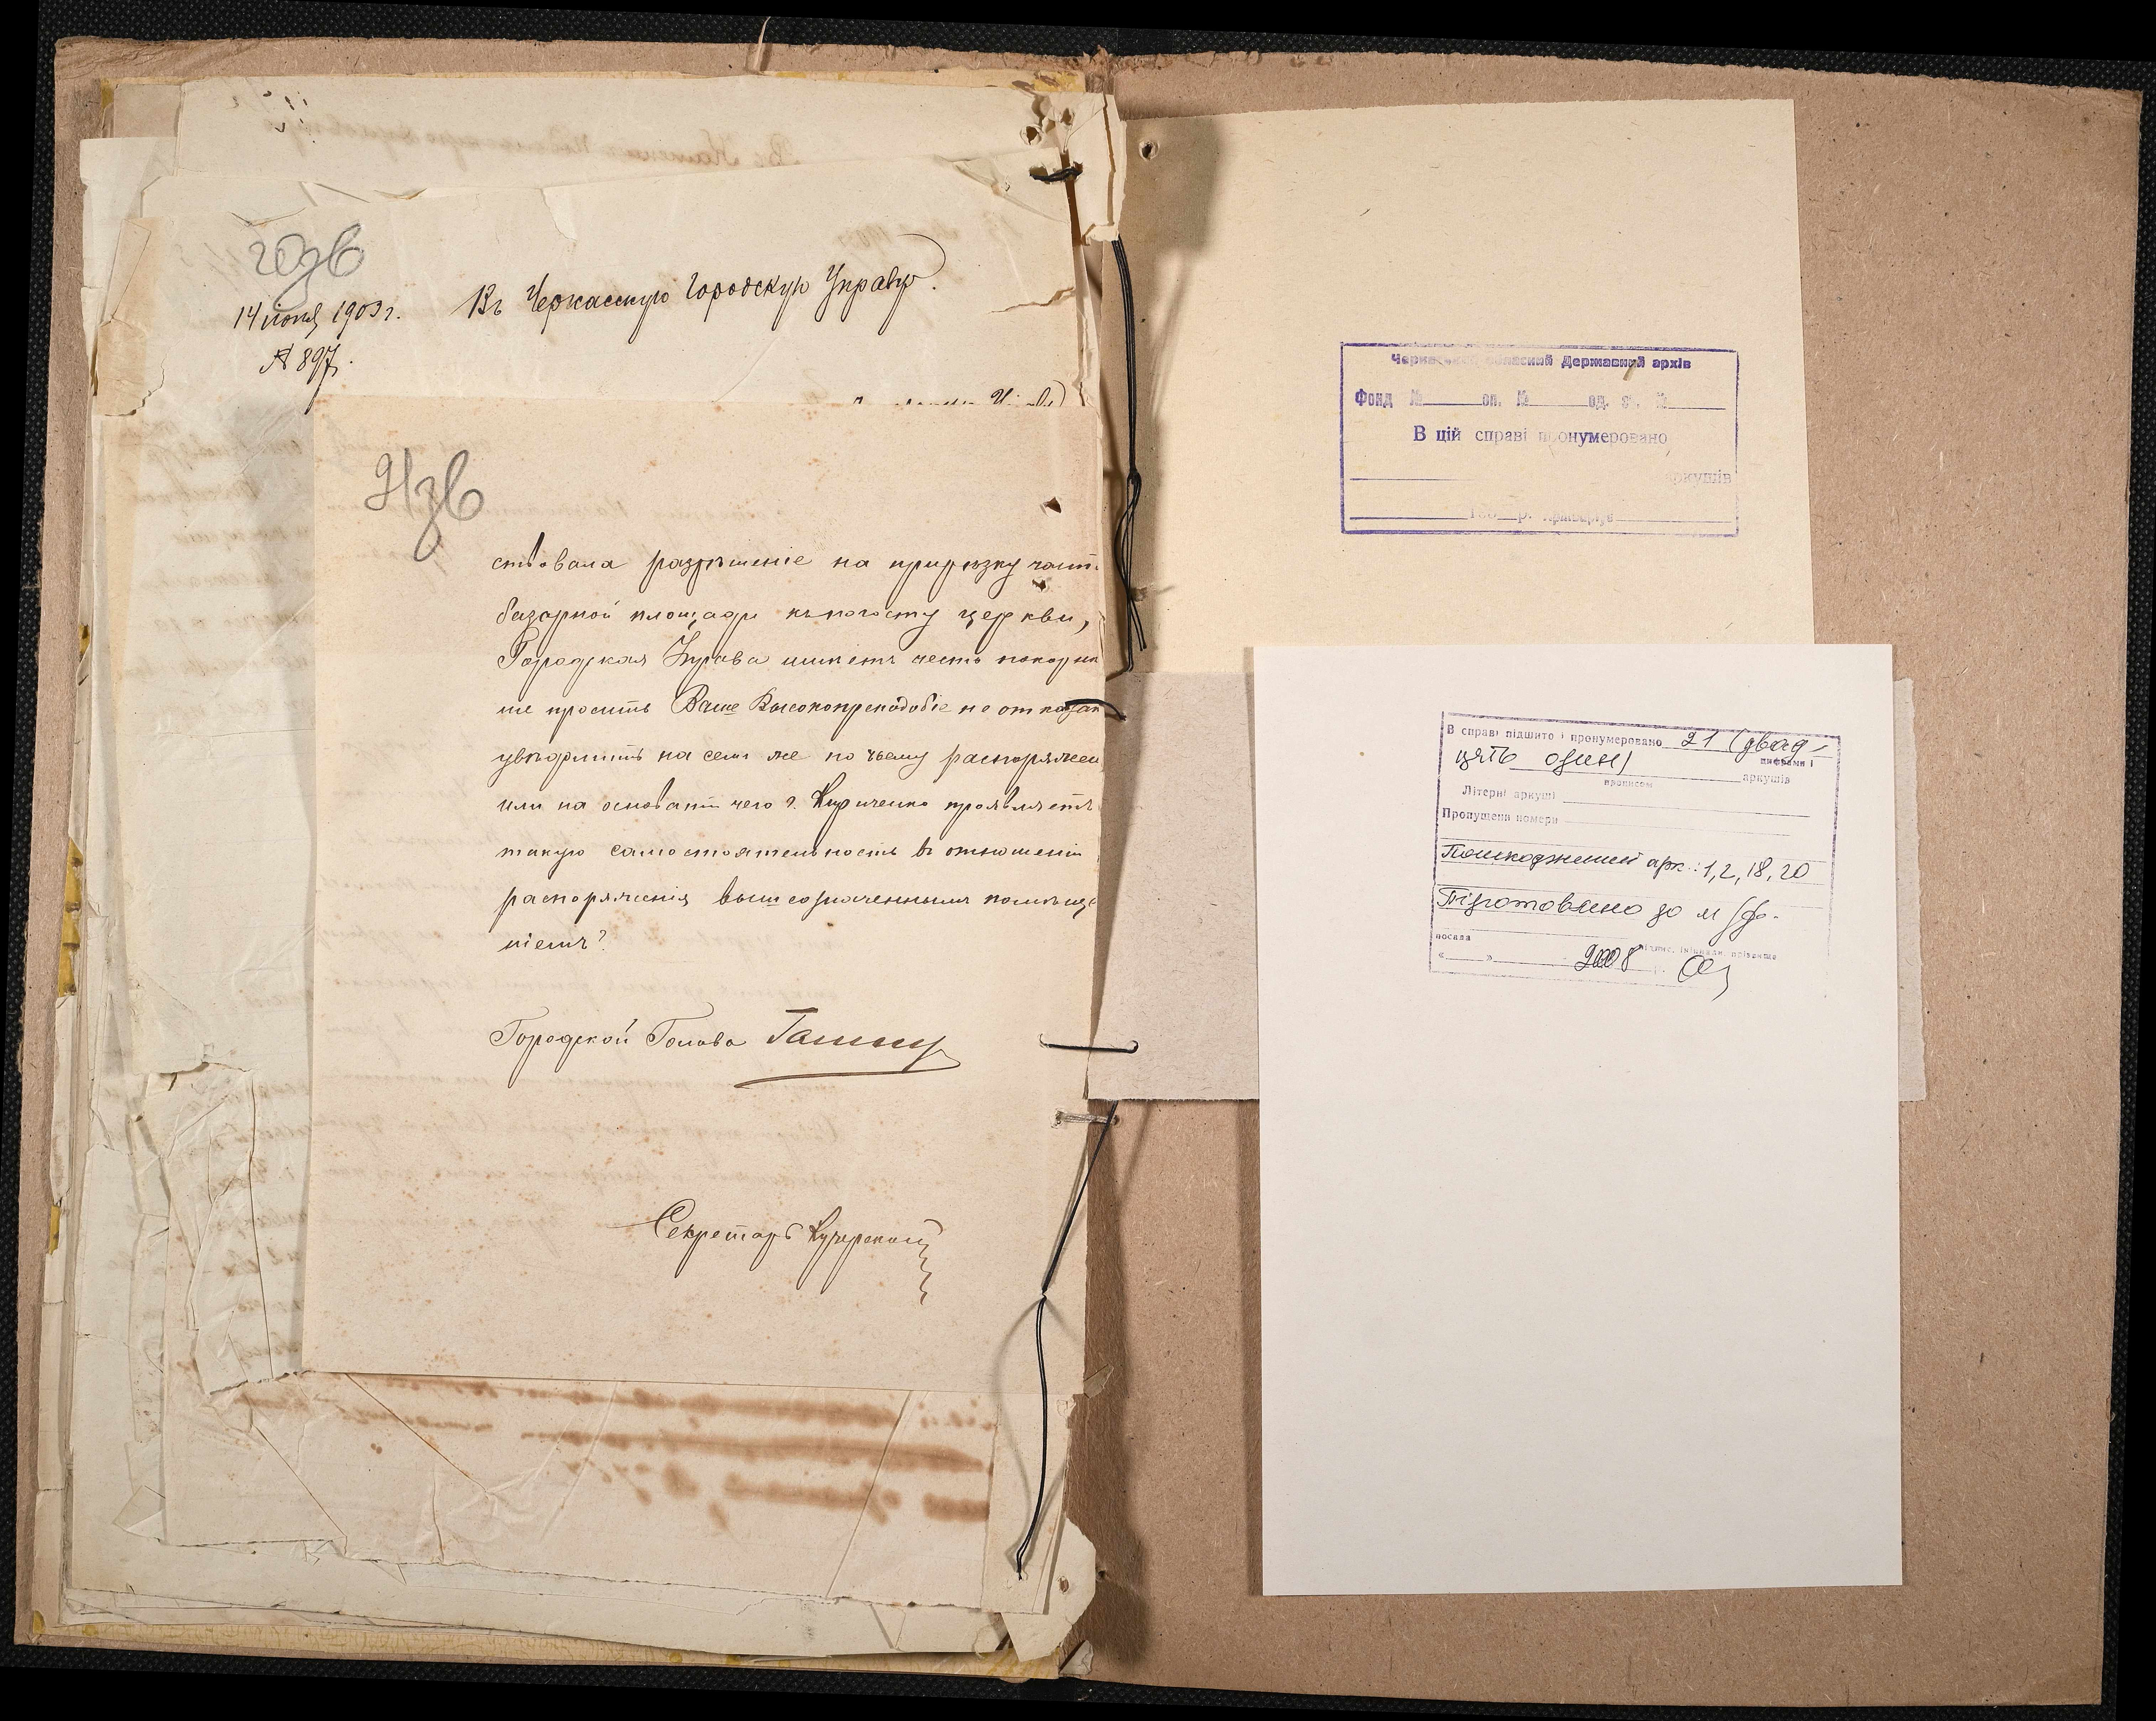 20зв
14 іюня 1903 г.
№ 897.
Въ Черкасскую Городскую Управу.
21зв
ствовала разрѣшеніе на прирѣзку част
базарной площади къ погосту церкви,
Городская Управа имѣетъ честь покорнѣ
ше просить Ваше Высокопреподобіе не отказат
увѣдомить на семъ же по чьему распоряжен
или на основаніи чего г. Кириченко проявляетъ
такую самостоятельность въ отношеніи
распоряженія вышеозначеннымъ помѣще
ніемъ?
Городской Голова
Секретарь Кучерскій
обласний Державний архів
Фонд № оп. № од. зб. №
В цій справі пронумеровано
аркушів
В справі підшито і пронумеровано 21 (двад-
цифрами і
цять один)
прописом
аркушів
Літерні аркуші
Пропущені номери
Пошкоджений арк.: 1, 2, 18, 20
Підготовлено до м/ф.
посада
підпис, ініціали, прізвище
« » 2008 р.